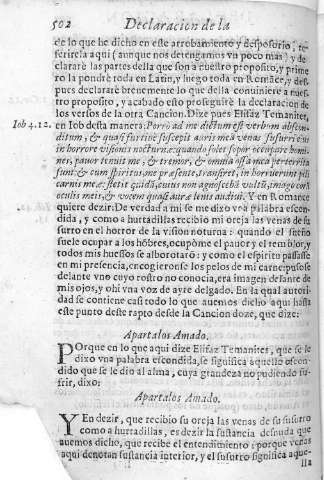 502 Declaracion de la
de lo que he dicho en este arrobamiento y desposorio, re-
ferirela aqui (aunque nos detengamos vn poco mas) y de
clararè las partes della que son a nuestro proposito, y prime
ro la pondrè toda en Latin, y luego toda en Romãce, y des
pues declararè breuemente lo que della conuiniere a nues
tro proposito, y acabado esto proseguirè la declaracion de
los versos de la otra Cancion. Dize pues Elifaz Temanites,
Iob 4.12.
en Iob desta manera: Porrò ad me dictum est verbum abscon-
ditum, & quasi furtiuè suscepit auris mea venas susurri eius
in horrore visionis nocturnæ: quando solet sopor occupare homi
nes, pauor tenuit me, & tremor, & omnia ossa mea perterrita
sunt: & cum spiritus me præsente transiret, inhorruerunt pili
carnis meæ: stetit quidã, cuius non agnoscebã vultũ, imago corã
oculis meis, & vocem quasi auræ lenis audiui. Y en Romance
quiere dezir: De verdad a mi se me dixo vna palabra escon-
dida, y como a hurtadillas recibio mi oreja las venas de su
surro en el horror de la vision noturna: quando el sueño
suele ocupar a los hõbres, ocupòme el pauor y el temblor, y
todos mis huessos se alborotarõ: y como el espiritu passasse
en mi presencia, encogieronse los pelos de mi carne: pusose
delante vno cuyo rostro no conocia, era imagen delante de
mis ojos, y ohi vna voz de ayre delgado. En la qual autori-
dad se contiene casi todo lo que auemos dicho aqui hasta
este punto deste rapto desde la Cancion doze, que dize:
Apartalos Amado.
Porque en lo que aqui dize Elifaz Temanites, que se le
dixo vna palabra escondida, se significa aquello escon-
dido que se le dio al alma, cuya grandeza no pudiendo su-
frir, dixo:
Apartalos Amado.
Y En dezir, que recibio su oreja las venas de su susurro
como a hurtadillas, es dezir la sustancia desnuda que
auemos dicho, que recibe el entendimiento: porque venas
aqui denotan sustancia interior, y el susurro significa aque-
lla